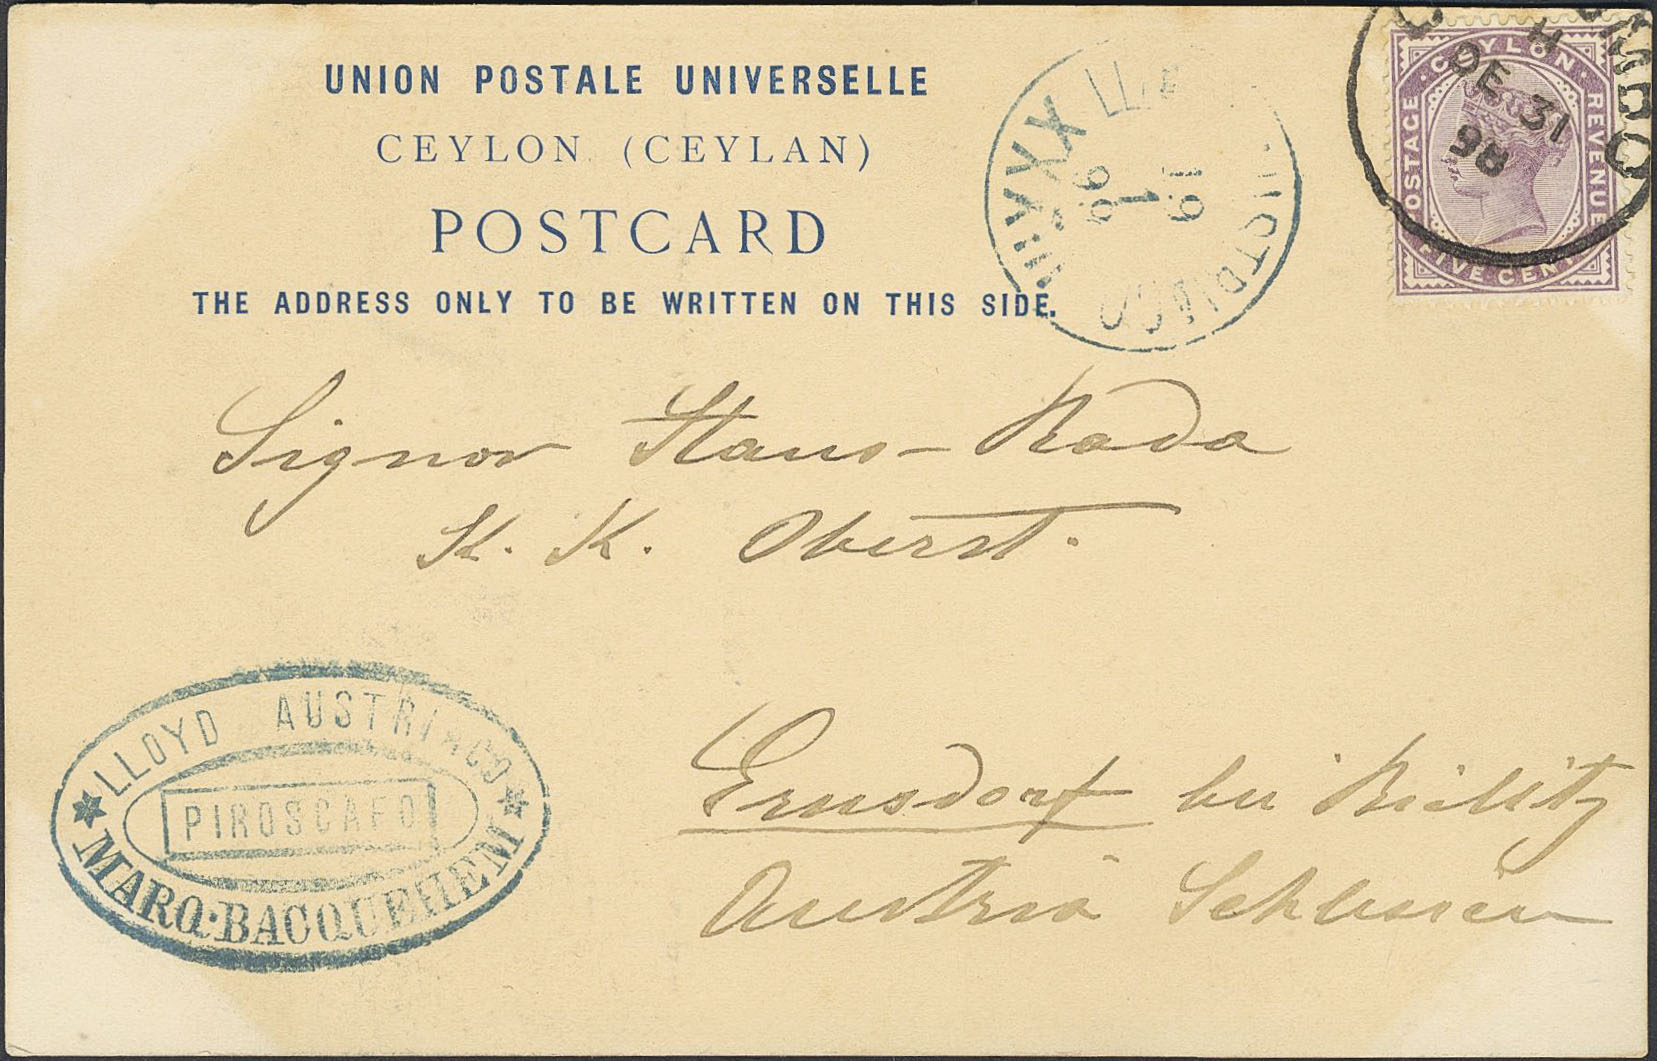 UNION POSTALE UNIVERSELLE
CEYLON (CEYLAN)
POSTCARD
THE ADDRESS ONLY TO BE WRITTEN ON THIS SIDE.
XXXVII
19
1
99
H
DE 31
98
CEYLON
POSTAGE
REVENUE
FIVE CENTS
Signor Hans-Rada
K. K. Oberst.
Ernsdorf bei Bielitz
Austria Schlesien
LLOYD AUSTRIACO
PIROSCAFO
MARQ. BACQUEHEM